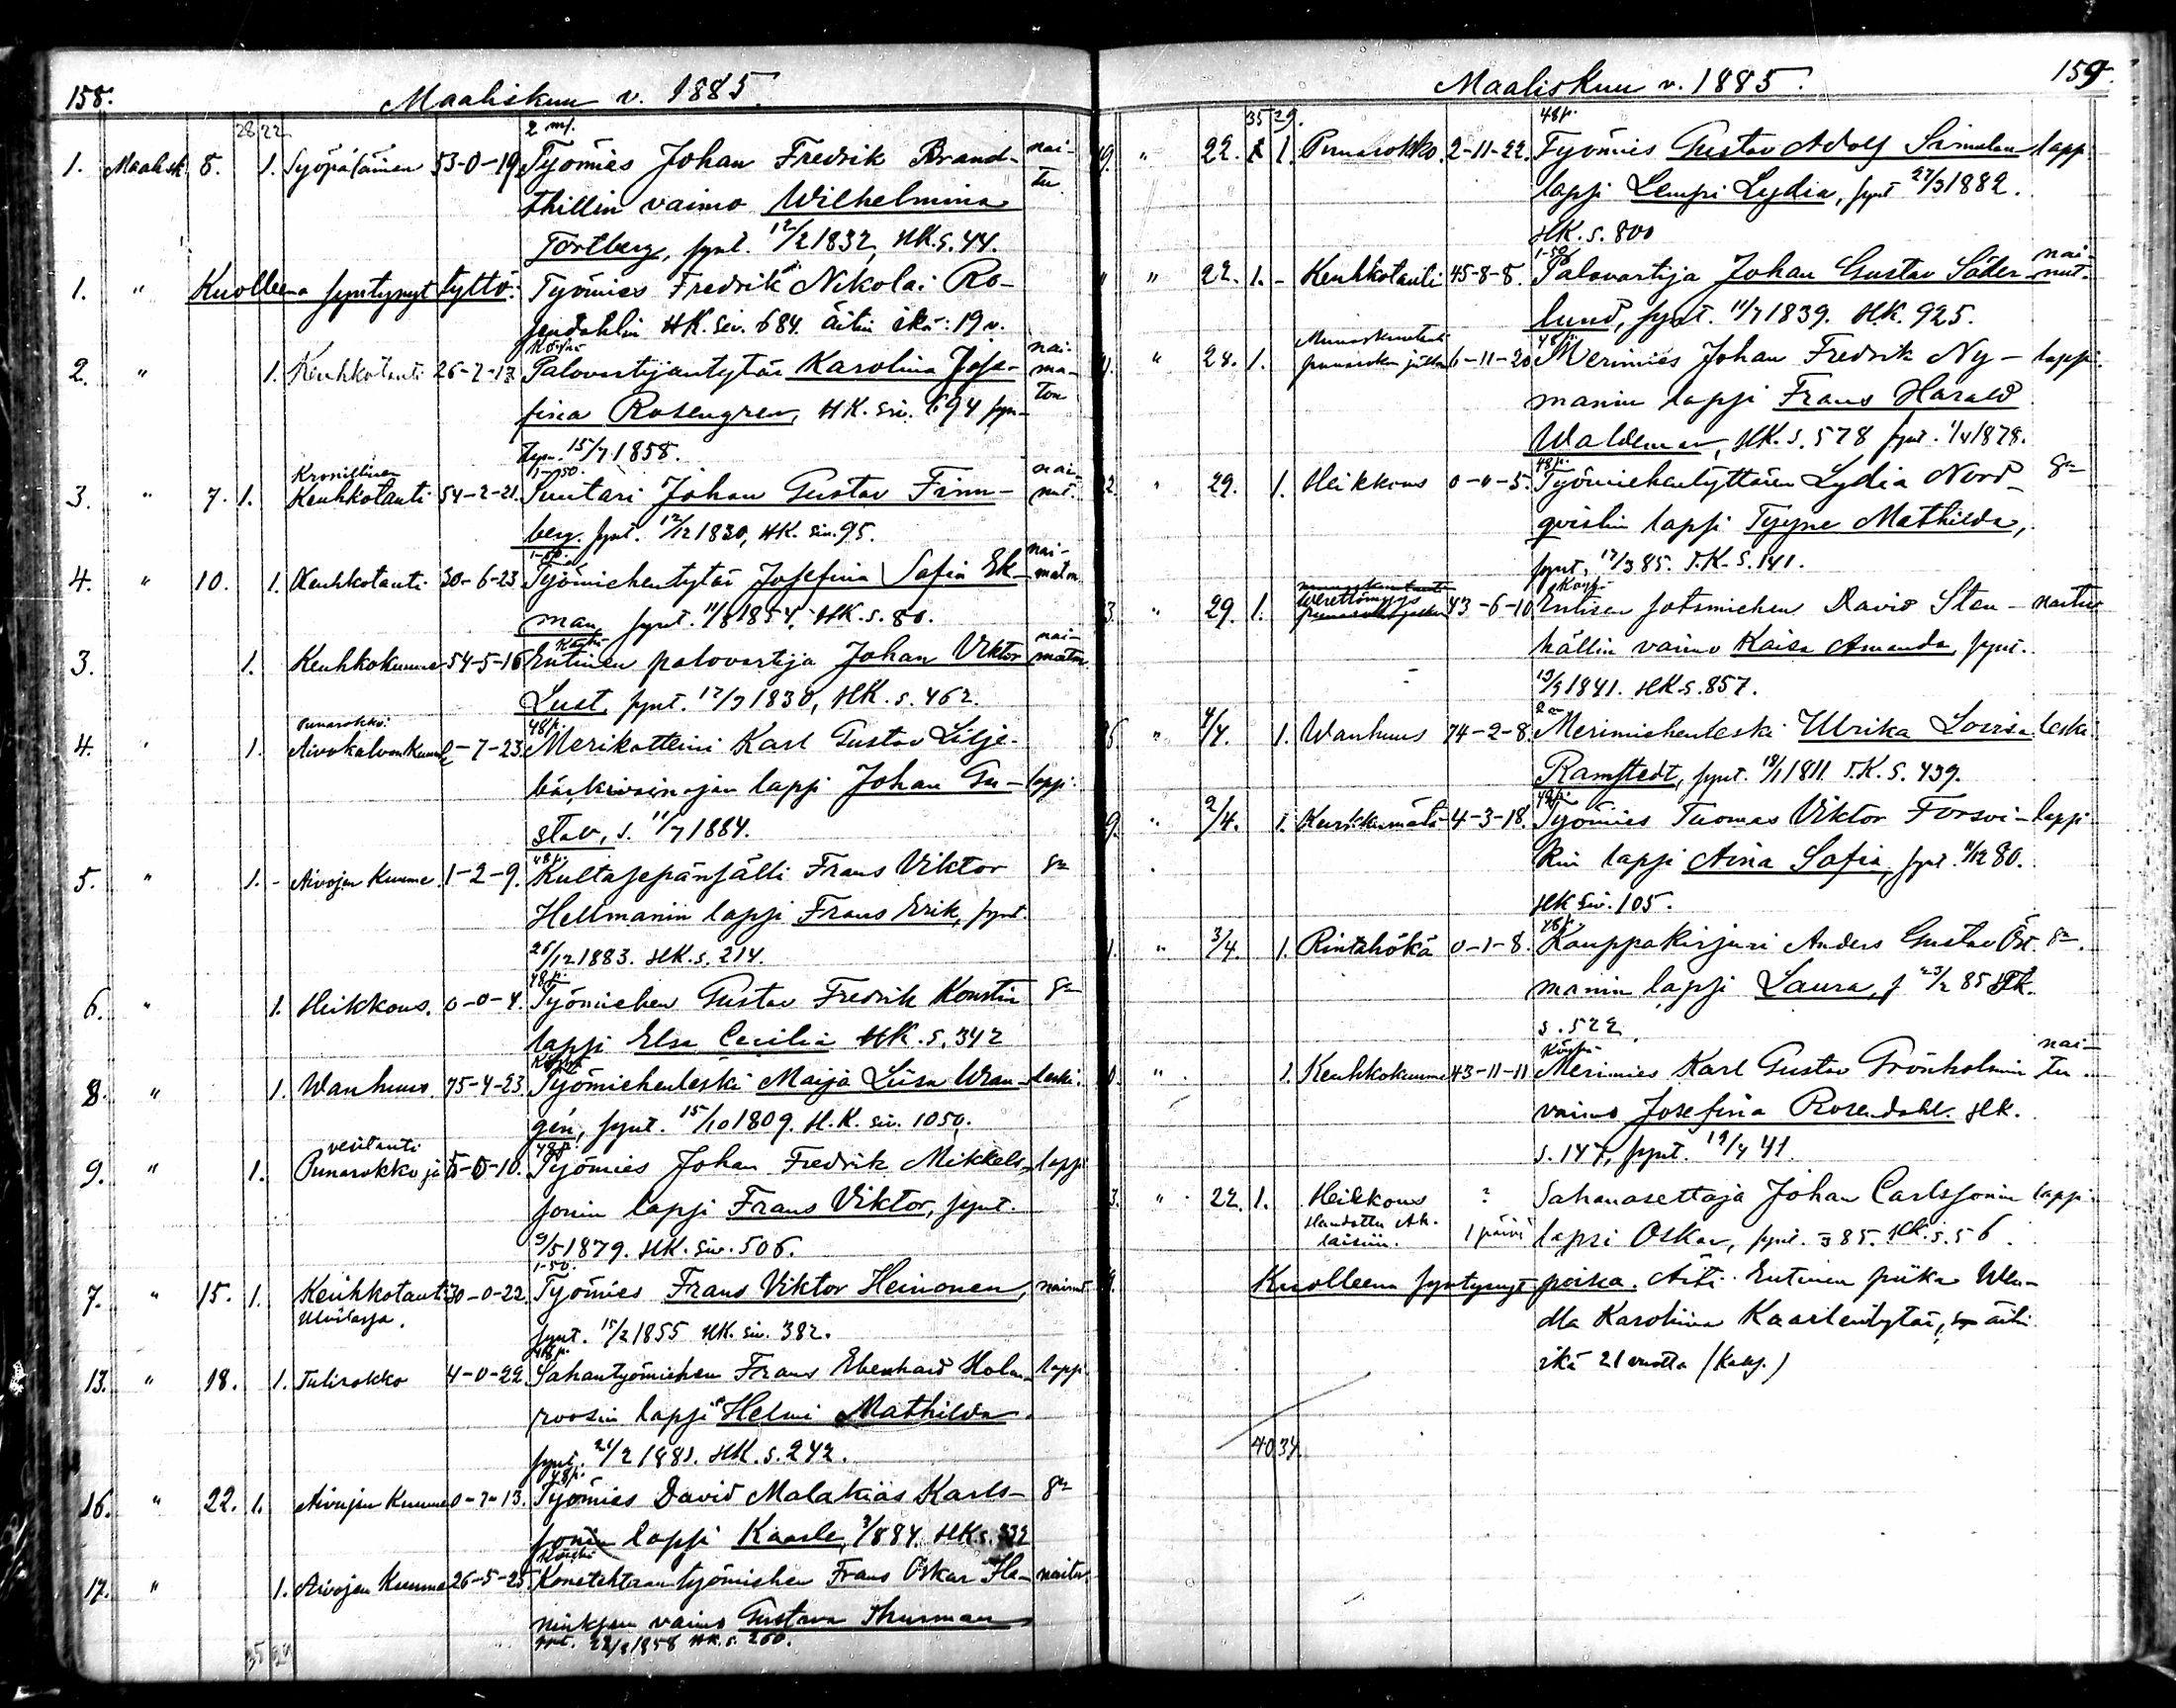 158.
Maaliskuu v. 1885.
28 22
1. Maalisk. 8. 1. Syöpätäinen 53-0-19 Työmies Johan Fredrik Brand- nai-
thillin vaimo Wilhelmina tu.
Tortberg, synt. 12/2 1832, HK. s. 44.
1. " Kuolleena syntynyt tyttö: Työmies Fredrik Nikolai Ro-
sendahlin HK. siv. 684. äitin ikä: 19 v.
Köyhä
2. " 1. Keuhkotauti 26-7-17 Palovartijantytär Karolina Jose- nai-
fina Rosengren, HK. siv. 694 syn- ma-
tyn. 15/7 1858. ton
1-50.
Kroonillinen
3. " 7. 1. Keuhkotauti 54-2-21. Suutari Johan Gustav Finn- nai-
berg. synt. 12/12 1830, HK. siv. 95. nut.
1-50.
4. " 10. 1. Keuhkotauti 30-6-23 Työmiehentytär Josefina Sofia Ek- nai-
man synt. 11/8 1854. HK. s. 80. maton
Köyhä
3. 1. Keuhkokuume 54-5-16 Entinen palovartija Johan Viktor nai-
Lust, synt. 17/9 1830, HK. s. 462. maton
Punarokko. 48 p.
4. 1. Aivokalvon kuume 0-7-23. Merikotteini Karl Gustav Lilje-
bäckivainajan lapsi Johan Gu- lapsi.
stav, s. 11/7 1884.
48 p.
5. " 1. - Aivojen kuume 1-2-9. Kultasepänsälli Frans Viktor
Hellmanin lapsi Frans Erik, synt.
26/12 1883. HK. s. 214.
48 p.
6. " 1. Heikkous. 0-0-4. Työmiehen Gustav Fredrik Konstin
lapsi Elsa Cecilia HK. s. 342
Köyhä
8. " 1. Wanhuus. 75-4-23. Työmiehenleski Maija Liisa Wran- leski.
gén, synt. 15/10 1809. H.K. siv. 1050.
vesitauti 48 p.
9. " 1. Punarokko ja 5-5-10. Työmies Johan Fredrik Mikkels- lapsi
sonin lapsi Frans Viktor, synt.
9/5 1879. HK. siv. 506.
1-50.
7. " 15. 1. Keuhkotauti 30-0-22. Työmies Frans Viktor Heinonen, nainut
synt. 15/2 1855 HK. siv. 382.
48 p.
13. " 18. 1. Tulirokko 4-0-22. Sahantyömiehen Frans Eberhard Holm- lapsi
roosin lapsi Helmi Mathilda.
synt. 21/2 1881. HK. s. 242.
48 p.
16. " 22. 1. Aivojen kuume 0-7-13. Työmies David Malakias Karls-
sonin lapsi Kaarle, 3/8 84. HK s. 332
Köyhä
17. " 1. Aivojen kuume 26-5-25 Konetehtaan työmiehen Frans Oskar Ha- naitu
ninksen vaimo Gustava Thurman
synt. 22/9 1858 HK. s. 260.
35 29
159.
Maaliskuu v. 1885.
35 29.
48 p.
19. " 22. 1. Punarokko. 2-11-22. Työmies Gustav Adolf Simolan lapsi
lapsi Lempi Lydia, synt 27/3 1882.
HK. s. 800
1-50
" 22. 1. - Keuhkotauti 45-8-8. Palovartija Johan Gustav Söder- nai-
lund, synt. 11/7 1839. HK. 925. nut.
Munuaskuntauti 48 p.
" 28. 1. punarokon jälkeen 6-11-20 Merimies Johan Fredrik Ny- lapsi.
manin lapsi Frans Harald
Waldemar, HK. s. 578 synt. 1/4 1878.
48 p.
" 29. 1. Heikkous 0-0-5. Työmiehentyttären Lydia Nord-
qvistin lapsi Tyyne Mathilda,
synt. 17/3 85. T.K. s. 141.
Köyhä
Werettömyys
" 29. 1. 43-6-10 Entisen sotamiehen David Sten- naitu
hällin vaimo Kaisa Amanda, synt.
19/9 1841. HK s. 857.
" 4/4. 1. Wanhuus 74-2-8. Merimiehenleski Ulrika Lovisa leski
Ramstedt, synt. 18/1 1811. T.K. s. 439.
48 p.
" 2/4. 1. Kurkkumätä 4-3-18. Työmies Tuomas Viktor Forsvi- lapsi
kin lapsi Aina Sofia, synt. 11/12 80.
HK siv. 105.
48 p.
" 3/4. 1. Rintahökä 0-1-8. Kauppakirjuri Anders Gustav Öst-
manin lapsi Laura, s 23/2 85
s. 522
Köyhä
" 1. Keuhkokuume 43-11-11 Merimies Karl Gustav Grönholmin nai-
vaimo Josefina Rosendahl. HK. tu.
s. 147, synt. 19/4 41.
" 22. 1. Heikkous ? Sahanasettaja Johan Carlssonin lapsi
1 päivä lapsi Oskar, synt. 3 85. HK. s. 56.
Kuolleena syntynyt poika. Äiti Entinen piika Wen-
dla Karoliina Kaarlentytär, äitin
ikä 21 vuotta (Kaks.)
40 34.